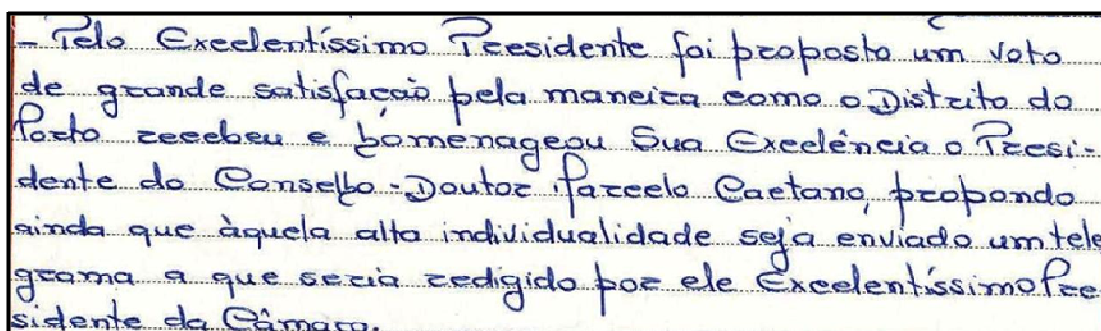 - Pelo Excelentíssimo Presidente foi proposto um voto
de grande satisfação pela maneira como o Distrito do
Porto recebeu e homenageou Sua Excelência o Presi-
dente do Conselho - Doutor Marcelo Caetano, propondo
ainda que àquela alta individualidade seja enviado um tele
grama a que seria redigido por ele Excelentíssimo Pre
sidente da Câmara.